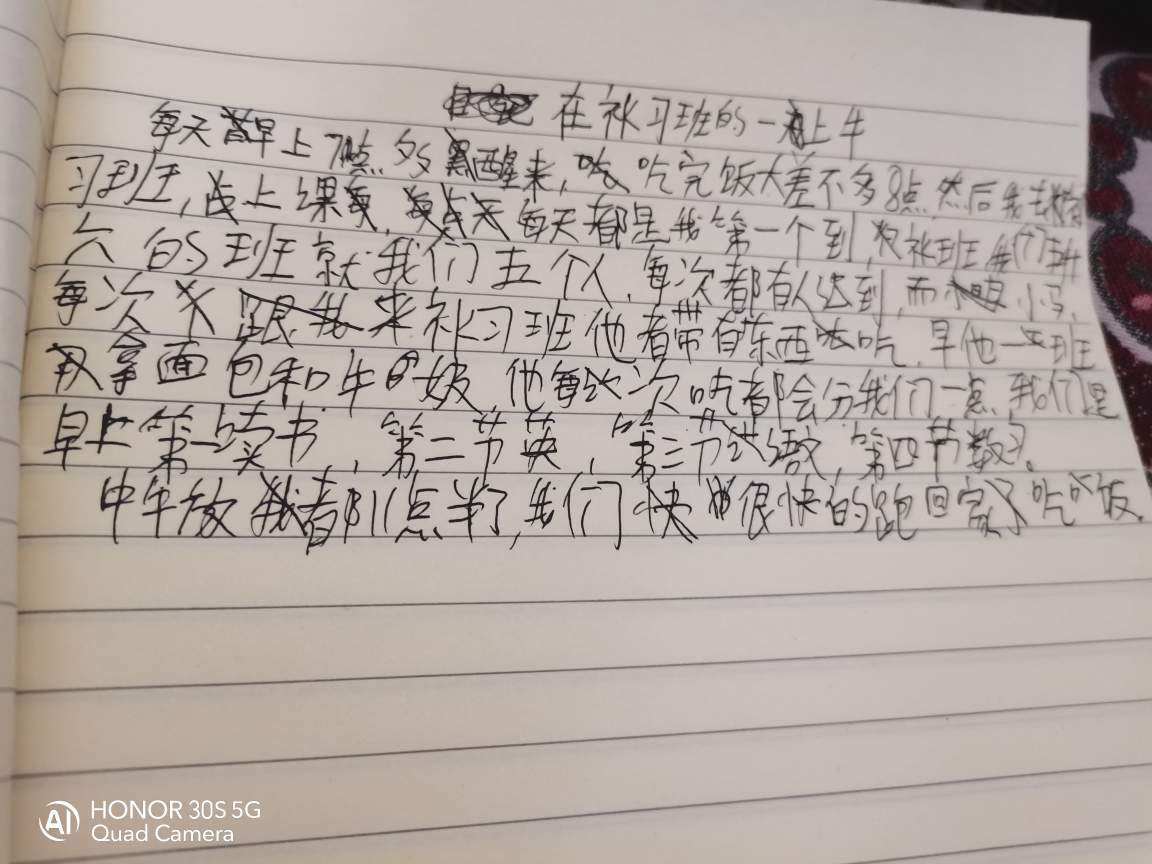 在补习班的一上午
每天早上7点多醒来,吃完饭大差不多8点,然后我去
习班,上课,每天都是我第一个到,补班我们班
六的班就我们五个人,每次都有人迟到,而小马,
每次来补习班他者带有东西吃,早他一上班
拿面包和牛奶,他每次吃都会分我们一点,我们是
早上第一读书,第二节英,第三节语,第四节数学。
中午放都11点半了,我们很快的跑回家了吃饭.
HONOR 30S 5G
Quad Camera